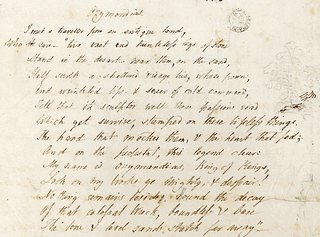 Ozymandias
I met a traveller from an antique land,
Who said — "two vast and trunkless legs of stone
Stand in the desart near them, on the sand,
Half sunk a shattered visage lies, whose frown,
And wrinkled lips, & sneer of cold command,
Tell that its sculptor well those passions read
Which yet survive, stamped on these lifeless things,
The hand that mocked them, & the heart that fed;
And on the pedestal, this legend clear:
My name is Ozymandias, King of Kings,
Look on my works ye Mighty, & despair!
No thing remains beside. Round the decay
Of that colossal Wreck, boundless & bare
The lone & level sands stretch far away."